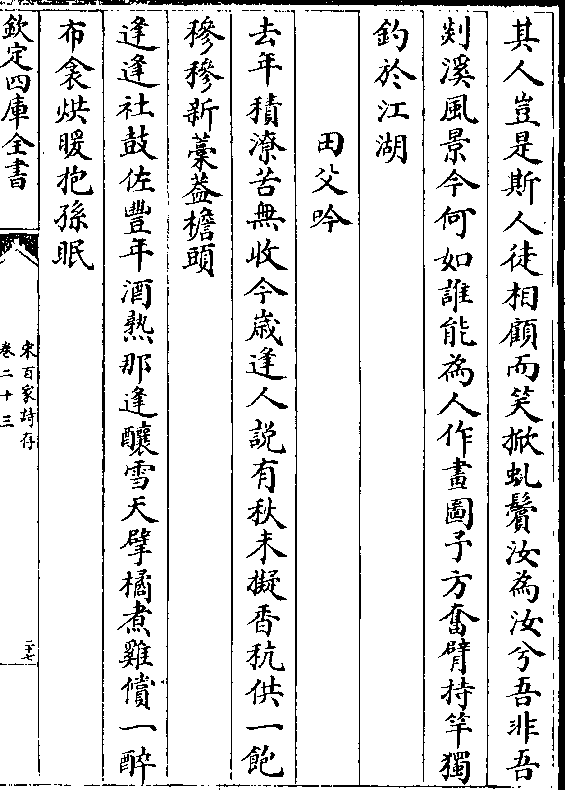 其人豈是斯人徒相顧而笑掀虬鬢汝為汝兮吾非吾
剡溪風景今何如誰能為人作畫圖予方奮臂持竿獨
釣於江湖
田父吟
去年積潦苦無收今歲逢人說有秋未擬香秔供一飽
穇穇新藁葢檐頭
逢逢社鼓佐豐年酒熟那逢釀雪天擘橘煮雞償一醉
布衾烘暖抱孫眠
欽定四庫全書
宋百家詩存
卷二十三
二七